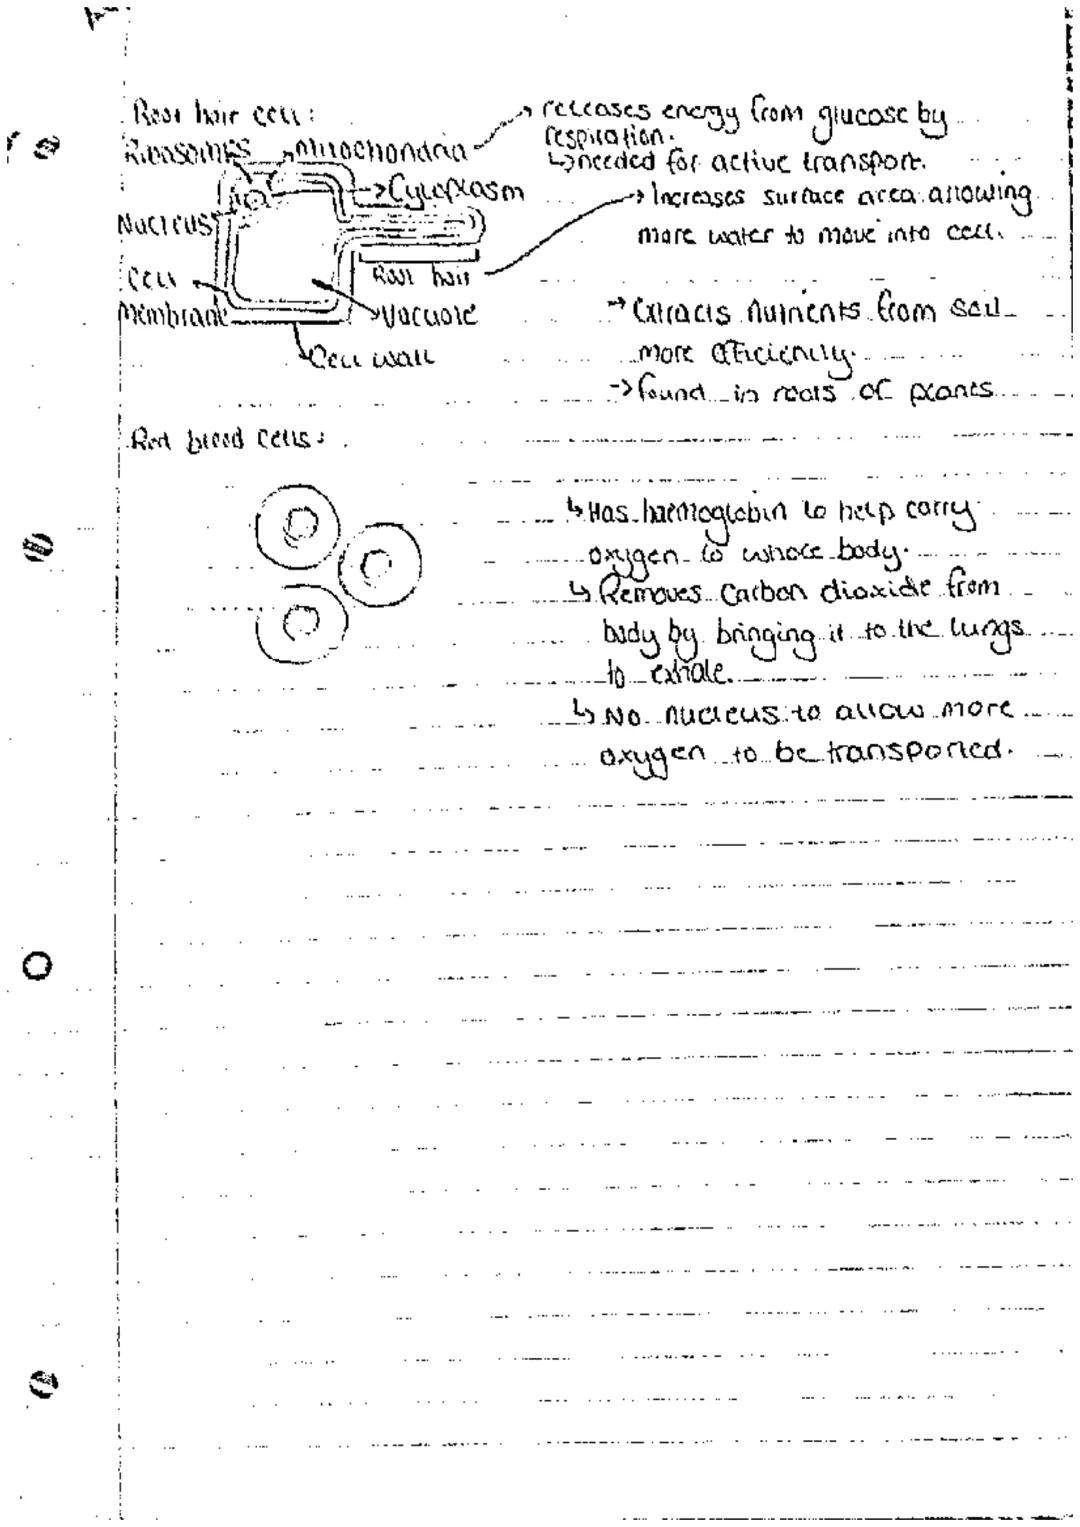 Root hair cell:
Ribosomes
mitochondria
releases energy from glucose by
respiration.
↳needed for active transport.
→Cytoplasm
→Increases surface area allowing
more water to move into cell.
Nucleus
Root hair
Cell
Membrane
→Vacuole
Cell wall
→Extracts nutrients from soil
more efficiently.
→found in roots of plants
Red blood cells:
↳Has haemoglobin to help carry
oxygen to whole body.
↳Removes carbon dioxide from
body by bringing it to the lungs
to exhale.
↳No nucleus to allow more
oxygen to be transported.